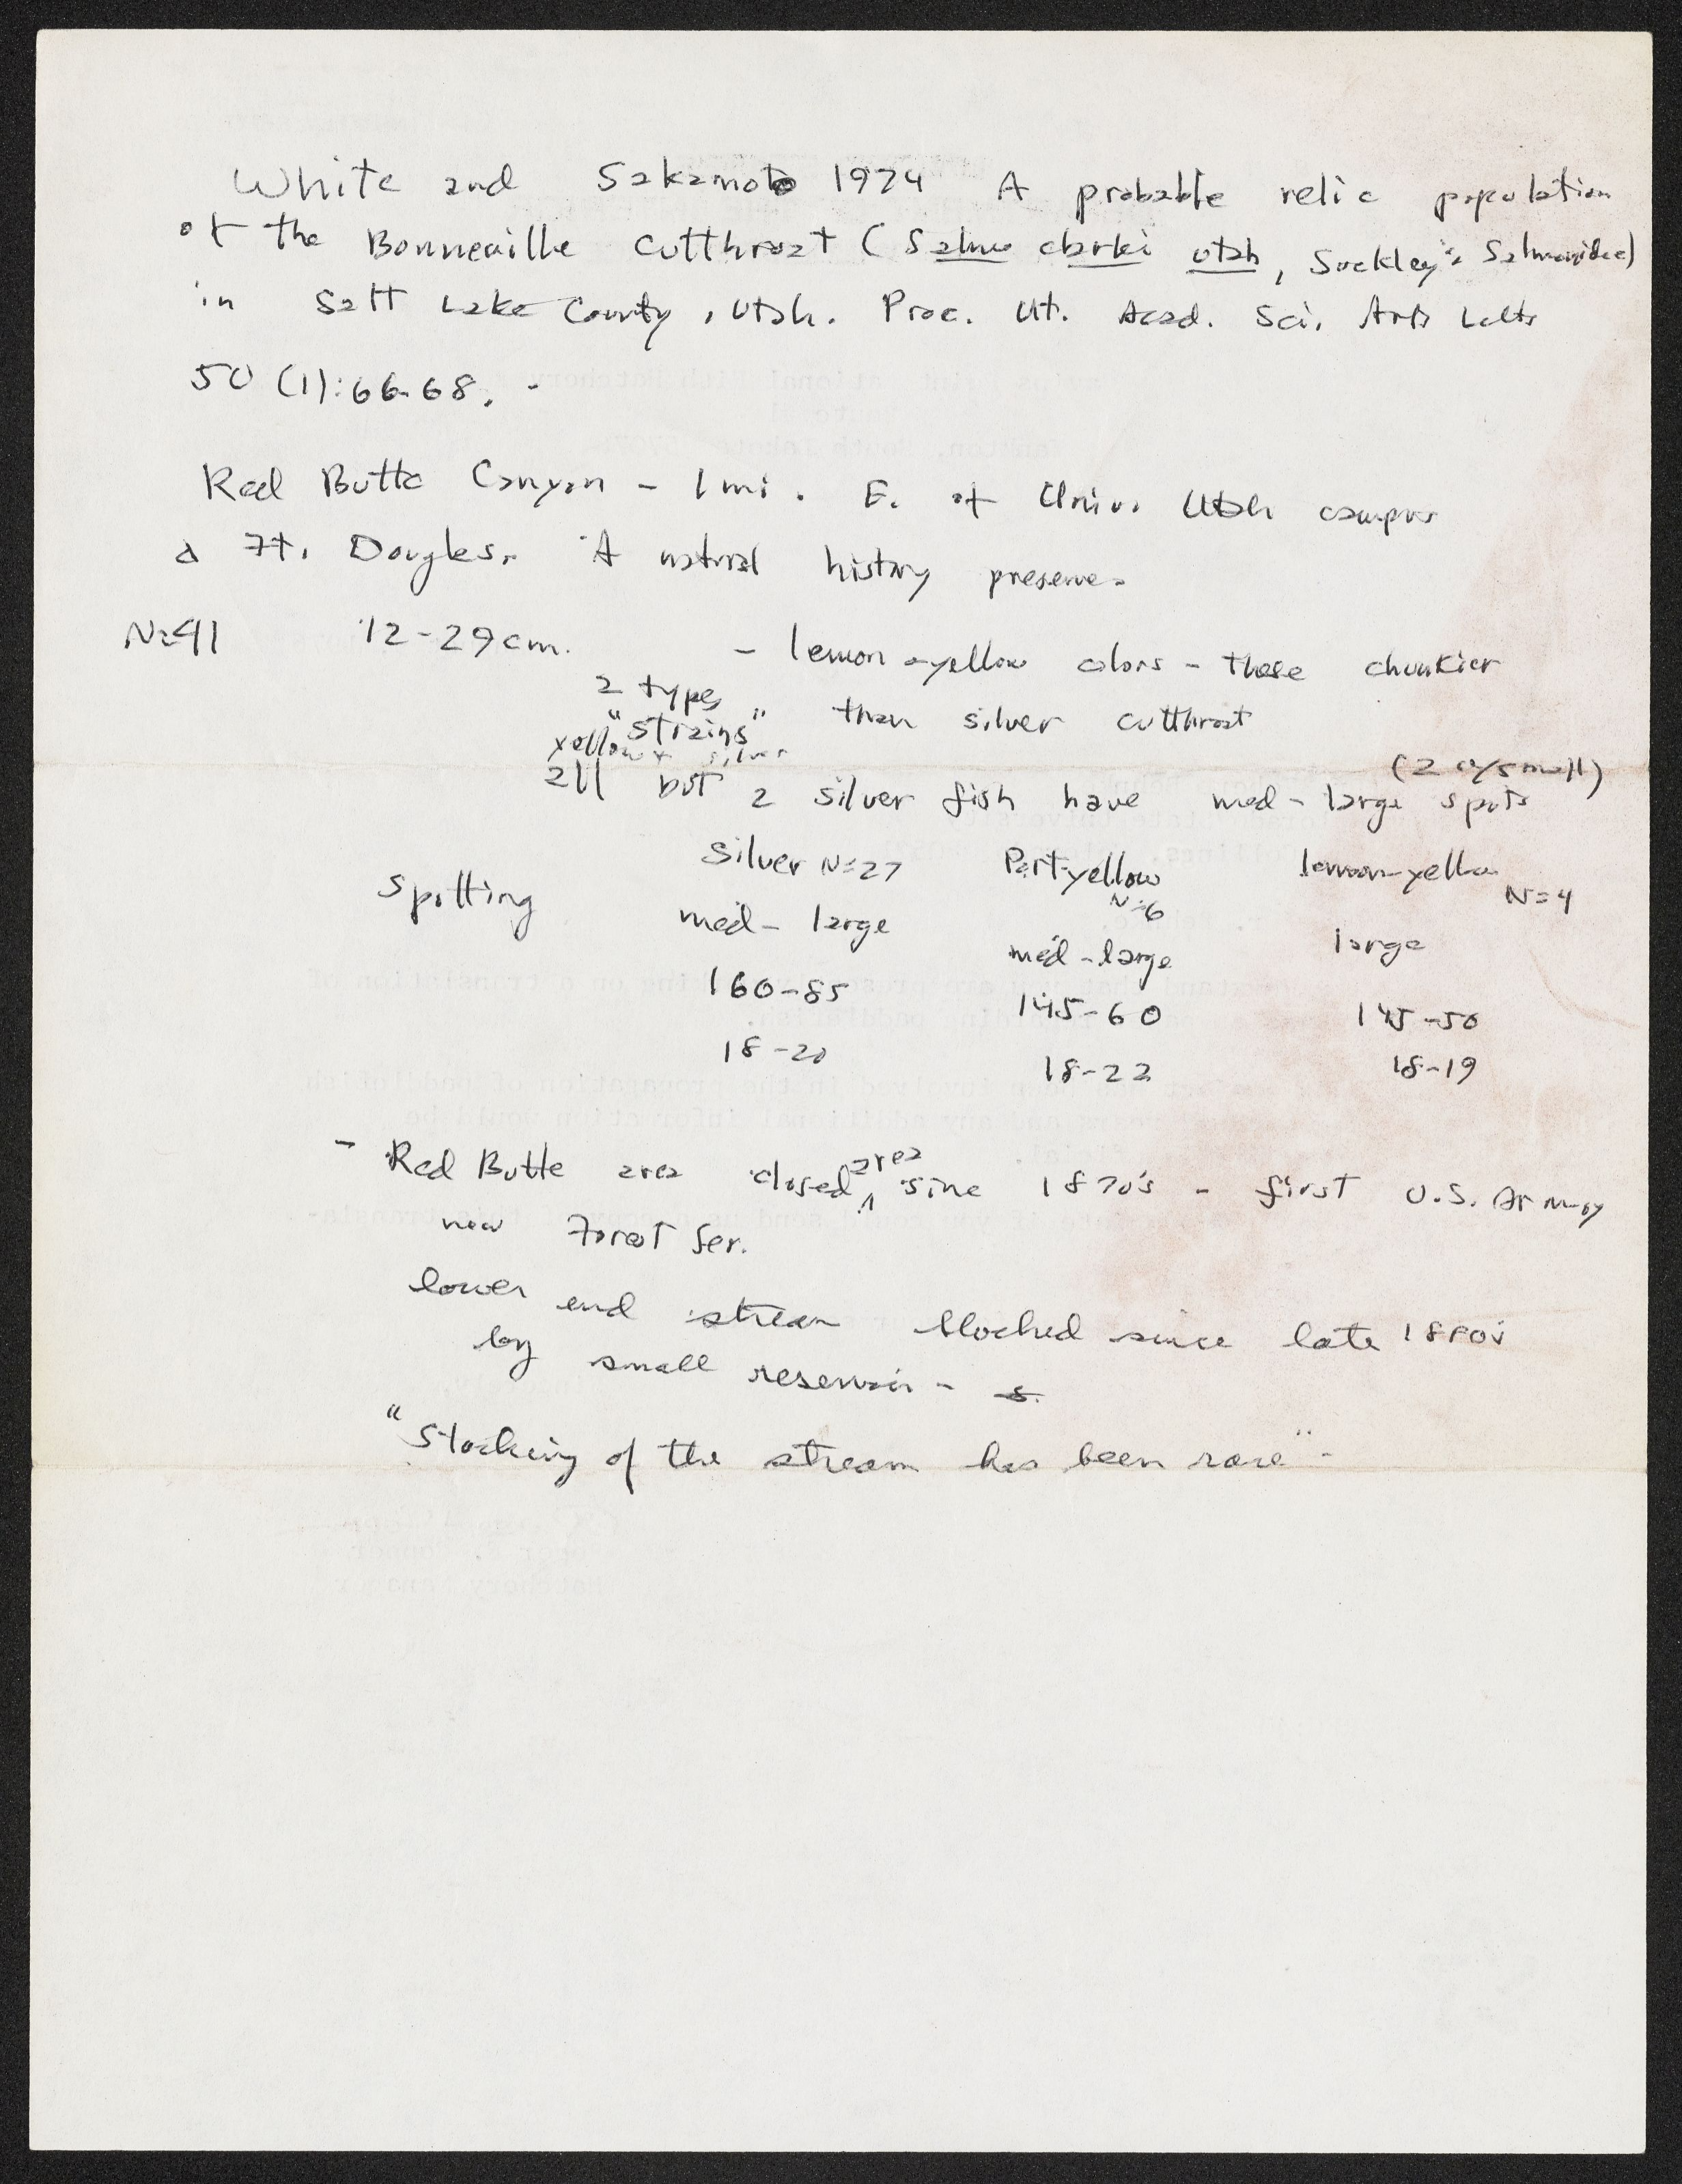 White and Sakamoto 1974 A probable relic population
of the Bonneville cutthroat (Salmo clarki utah, Suckley: Salmonidae)
in Salt Lake County, Utah. Proc. Ut. Acad. Sci. Arts Letts
50 (1): 66-68. -
Red Butte Canyon - 1 mi. E. of Univ. Utah campus
& Ft. Douglas. A natural history preserve.
N=41 12-29 cm. - lemon-yellow colors - these chunkier
2 types "strains" than silver cutthroat
yellow + silver
all but 2 silver fish have med-large spots (2 w/small)
Spotting silver N=27 Part-yellow N=6 lemon-yellow N=4
med-large med-large large
160-85 145-60 145-50
18-20 18-22 18-19
- Red Butte area closed area sine 1870's - first U.S. Army
now Forest Ser.
lower end stream blocked since late 1880's
by small reservoir -
"Stocking of the stream has been rare" -